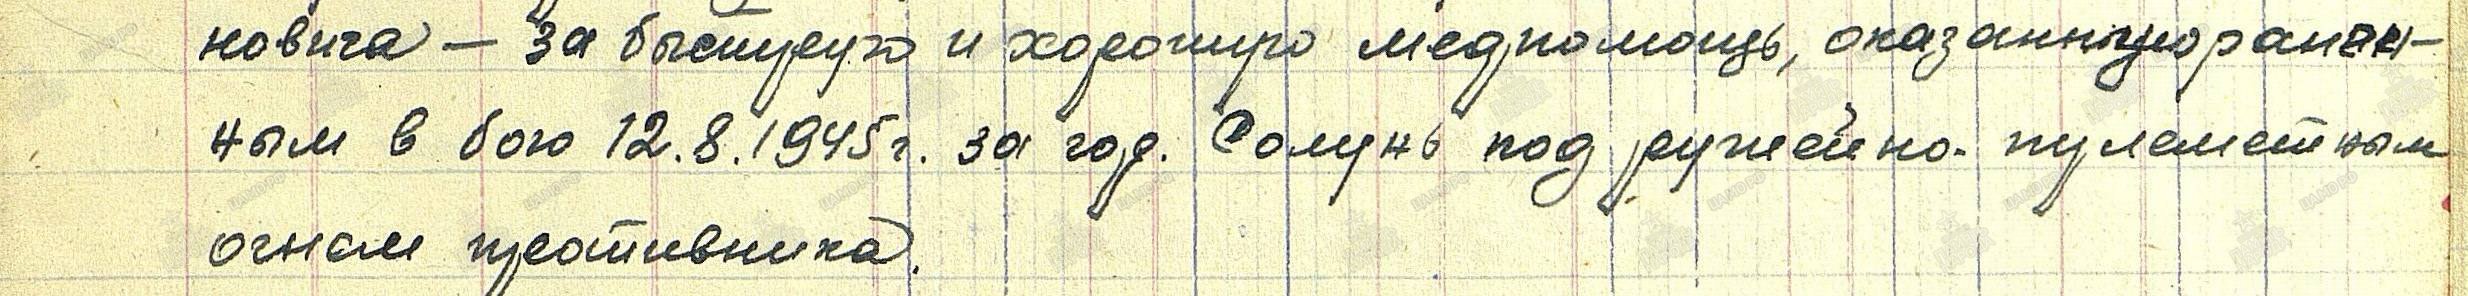 новича — за быструю и хорошую медпомощь, оказанную ранен-
ным в бою 12.8.1945г. за гор. Солунь под ружейно-пулеметным
огнем противника.